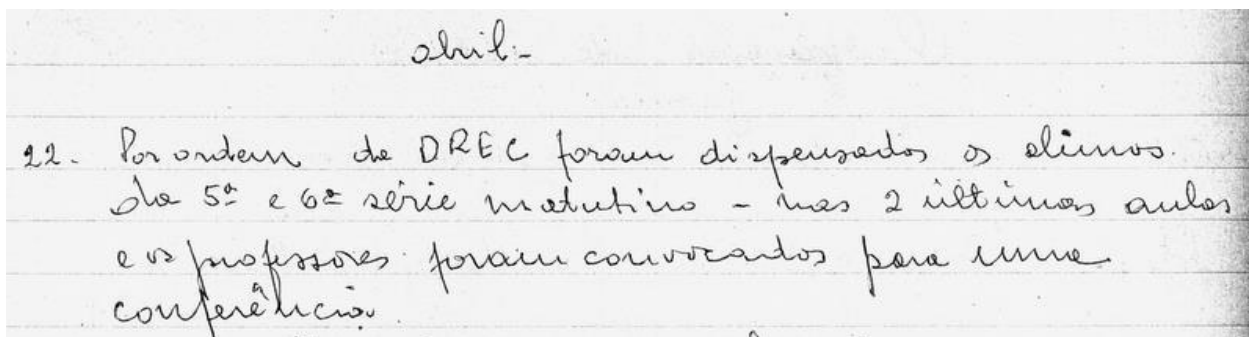 abril:-
22. Por ordem da DREC foram dispensados os alunos.
da 5ª e 6ª série matutino - nas 2 últimas aulas
e os professores foram convocados para uma
conferência.